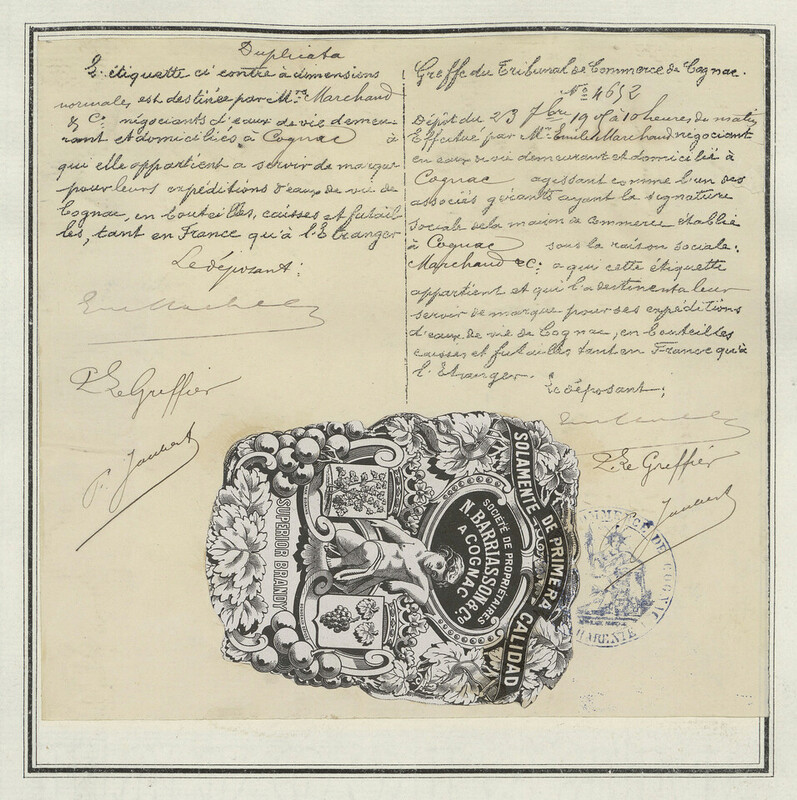 Duplicata
L'étiquette ci contre à dimensions
normales est destinée par Mrs Marchand
& Co négociants d'eaux de vie demeu-
rant et domiciliés à Cognac à
qui elle appartient a servir de marque
pour leurs expéditions d'eaux de vie de
Cognac, en bouteilles, caisses et futail-
les, tant en France qu'à l'Étranger
Le déposant:
P. Le Greffier
P. Jaubert
Greffe du Tribunal de Commerce de Cognac.
No 4652
Dépôt du 23 7bre à 10 heures du matin
Effectué par Mr Emile Marchand négociant
en eaux de vie demeurant et domicilié à
Cognac agissant comme l'un des
associés gérants ayant la signature
sociale de la maison de commerce établie
à Cognac sous la raison sociale:
Marchand & Co: a qui cette étiquette
appartient et qui l'a destinent a leur
servir de marque pour ses expéditions
d'eaux de vie de Cognac, en bouteilles
caisses et futailles tant en France qu'à
l'Étranger.
Le déposant;
P. Le Greffier
Jaubert
SOLAMENTE DE PRIMERA CALIDAD
SOCIÉTÉ DE PROPRIÉTAIRES
N. BARRIASSON & Co
A COGNAC
SUPERIOR BRANDY
COMMERCE DE COGNAC
CHARENTE